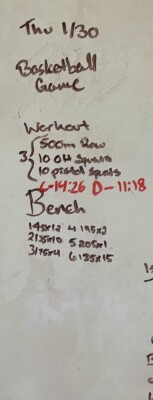 Thu 1/30
Basketball
Game
Workout
3 { 500m Row
10 OH Squats
10 pistol squats
C-14:26 D-11:18
Bench
145x12 4 195x2
2) 135x10 5 205x1
3) 175x4 6 135x15